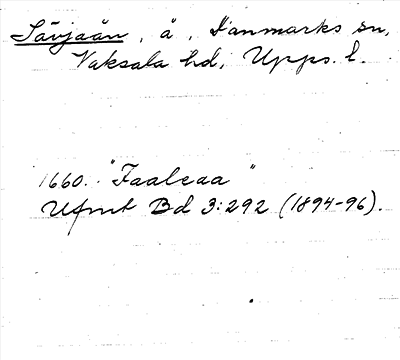 Sävjaån, å, Danmarks sn,
Vaksala hd, Upps. l.
1660. "Faaleaa"
Ufmt Bd 3:292 (1894-96).